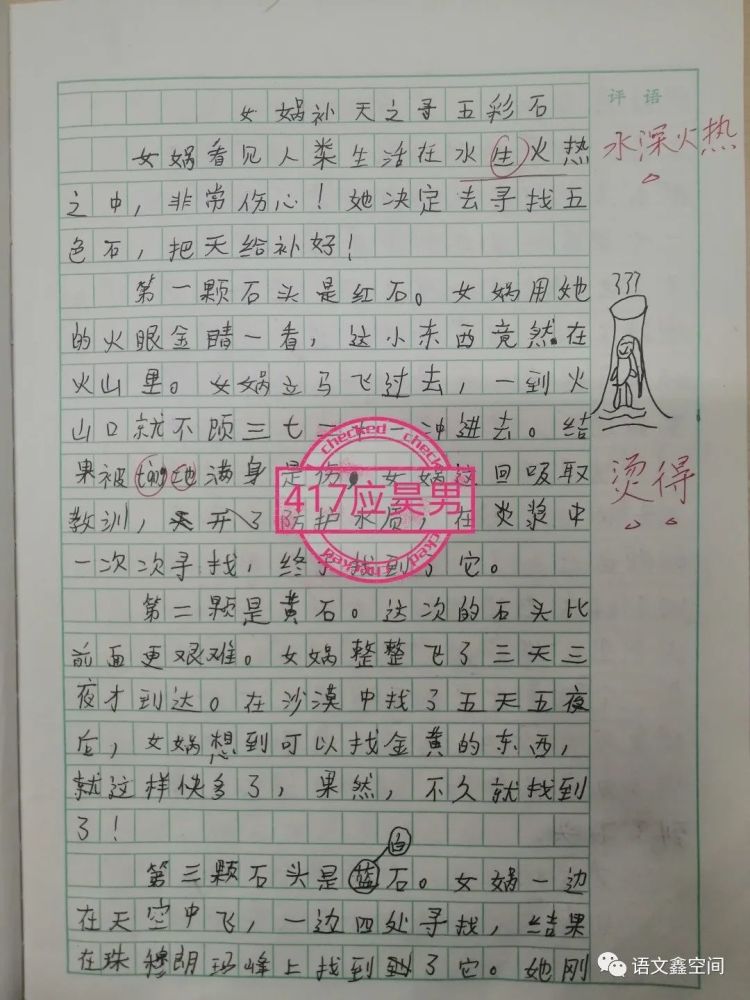 女娲补天之寻五彩石
评语
女娲看见人类生活在水生火热
水深火热
之中，非常伤心！她决定去寻找五
色石，把天给补好！
第一颗石头是红石。女娲用她
的火眼金睛一看，这小东西竟然在
火山里。女娲立马飞过去，一到火
山口就不顾三七二十一冲进去。结
果被tàng地满身是伤，女娲这回吸取
烫得
教训，开了防护水质，在炎浆中
一次次寻找，终于找到了它。
第二颗是黄石。这次的石头比
前面更艰难。女娲整整飞了三天三
夜才到达。在沙漠中找了五天五夜
后，女娲想到可以找金黄的东西，
就这样快多了，果然，不久就找到
了！
白
第三颗石头是蓝石。女娲一边
在天空中飞，一边四处寻找，结果
在珠穆朗玛峰上找到到了它。她刚
checked
417应昊男
checked
语文鑫空间